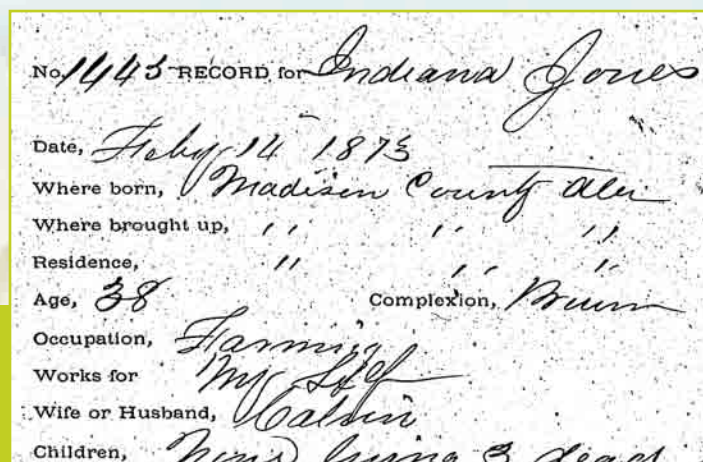 No. 1443 RECORD for Indiana Jones
Date, Feby 14 1873
Where born, Madison County Ala
Where brought up, " " "
Residence, " " "
Age, 38 Complexion, Brown
Occupation, Farming
Works for My Self
Wife or Husband, Calvin
Children, None living 3 dead